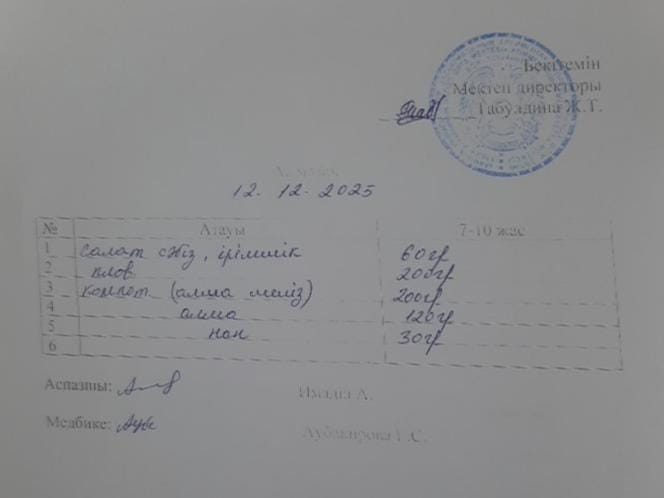 Бекітемін
Мектеп директоры
Табулдина Ж.Т.
12. 12. 2025
№ Атауы 7-10 жас
1 салат сәбіз, ірімшік 60гр
2 плов 200гр
3 компот (алма мейіз) 200гр
4 алма 120гр
5 нан 30гр
6
Аспазшы: А.
Медбике: Г.С.